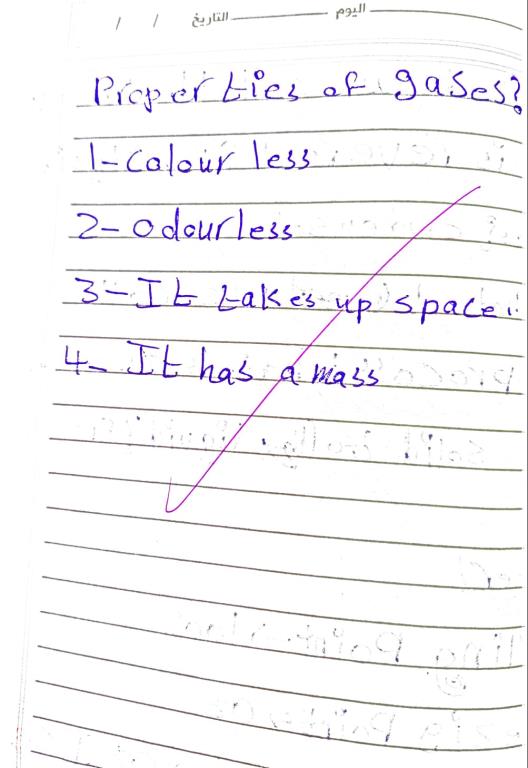 اليوم ــــــــــ التاريخ ــــــــــ / /
Properties of gases?
1- Colour less
2- Odourless
3- It takes up space.
4- It has a mass